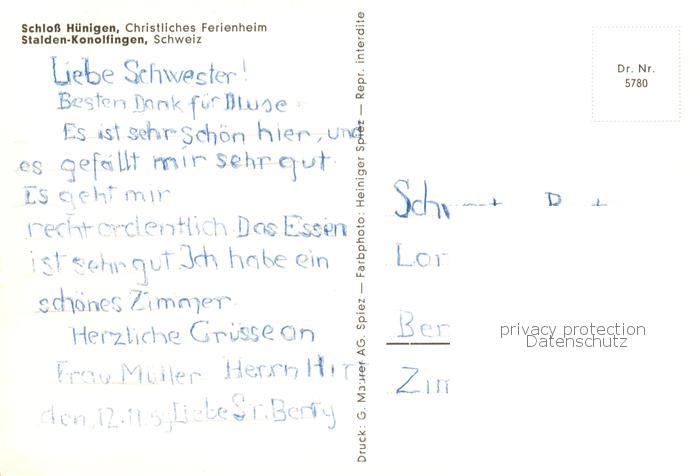 Schloß Hünigen, Christliches Ferienheim
Stalden-Konolfingen, Schweiz
Liebe Schwester!
Besten Dank für Bluse
Es ist sehr schön hier, und
es gefällt mir sehr gut.
Es geht mir
recht ordentlich Das Essen
ist sehr gut Ich habe ein
schönes Zimmer.
Herzliche Grüsse an
Frau Muller Herrn
den, 12.11. Liebe Sr. Berty
Druck: G. Maurer AG. Spiez — Farbphoto: Heiniger Spiez — Repr. interdite
Dr. Nr.
5780
Lor
Ber
Zim
privacy protection
Datenschutz